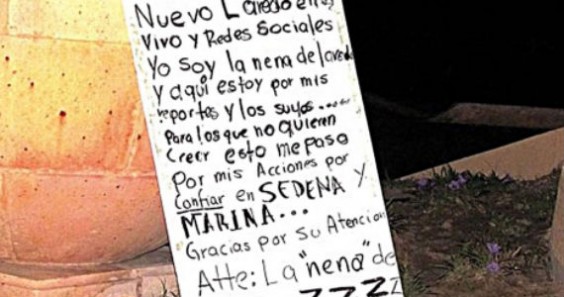 Nuevo Laredo en
Vivo y Redes Sociales
Yo Soy la nena de laredo
Y aquí estoy por mis
reportes y los suyos.....
Para los que no quieren
Creer esto me paso
Por mis Acciones por
Confiar en SEDENA Y
MARINA...
Gracias por su Atención
Atte: La "nena" de
ZZZZ